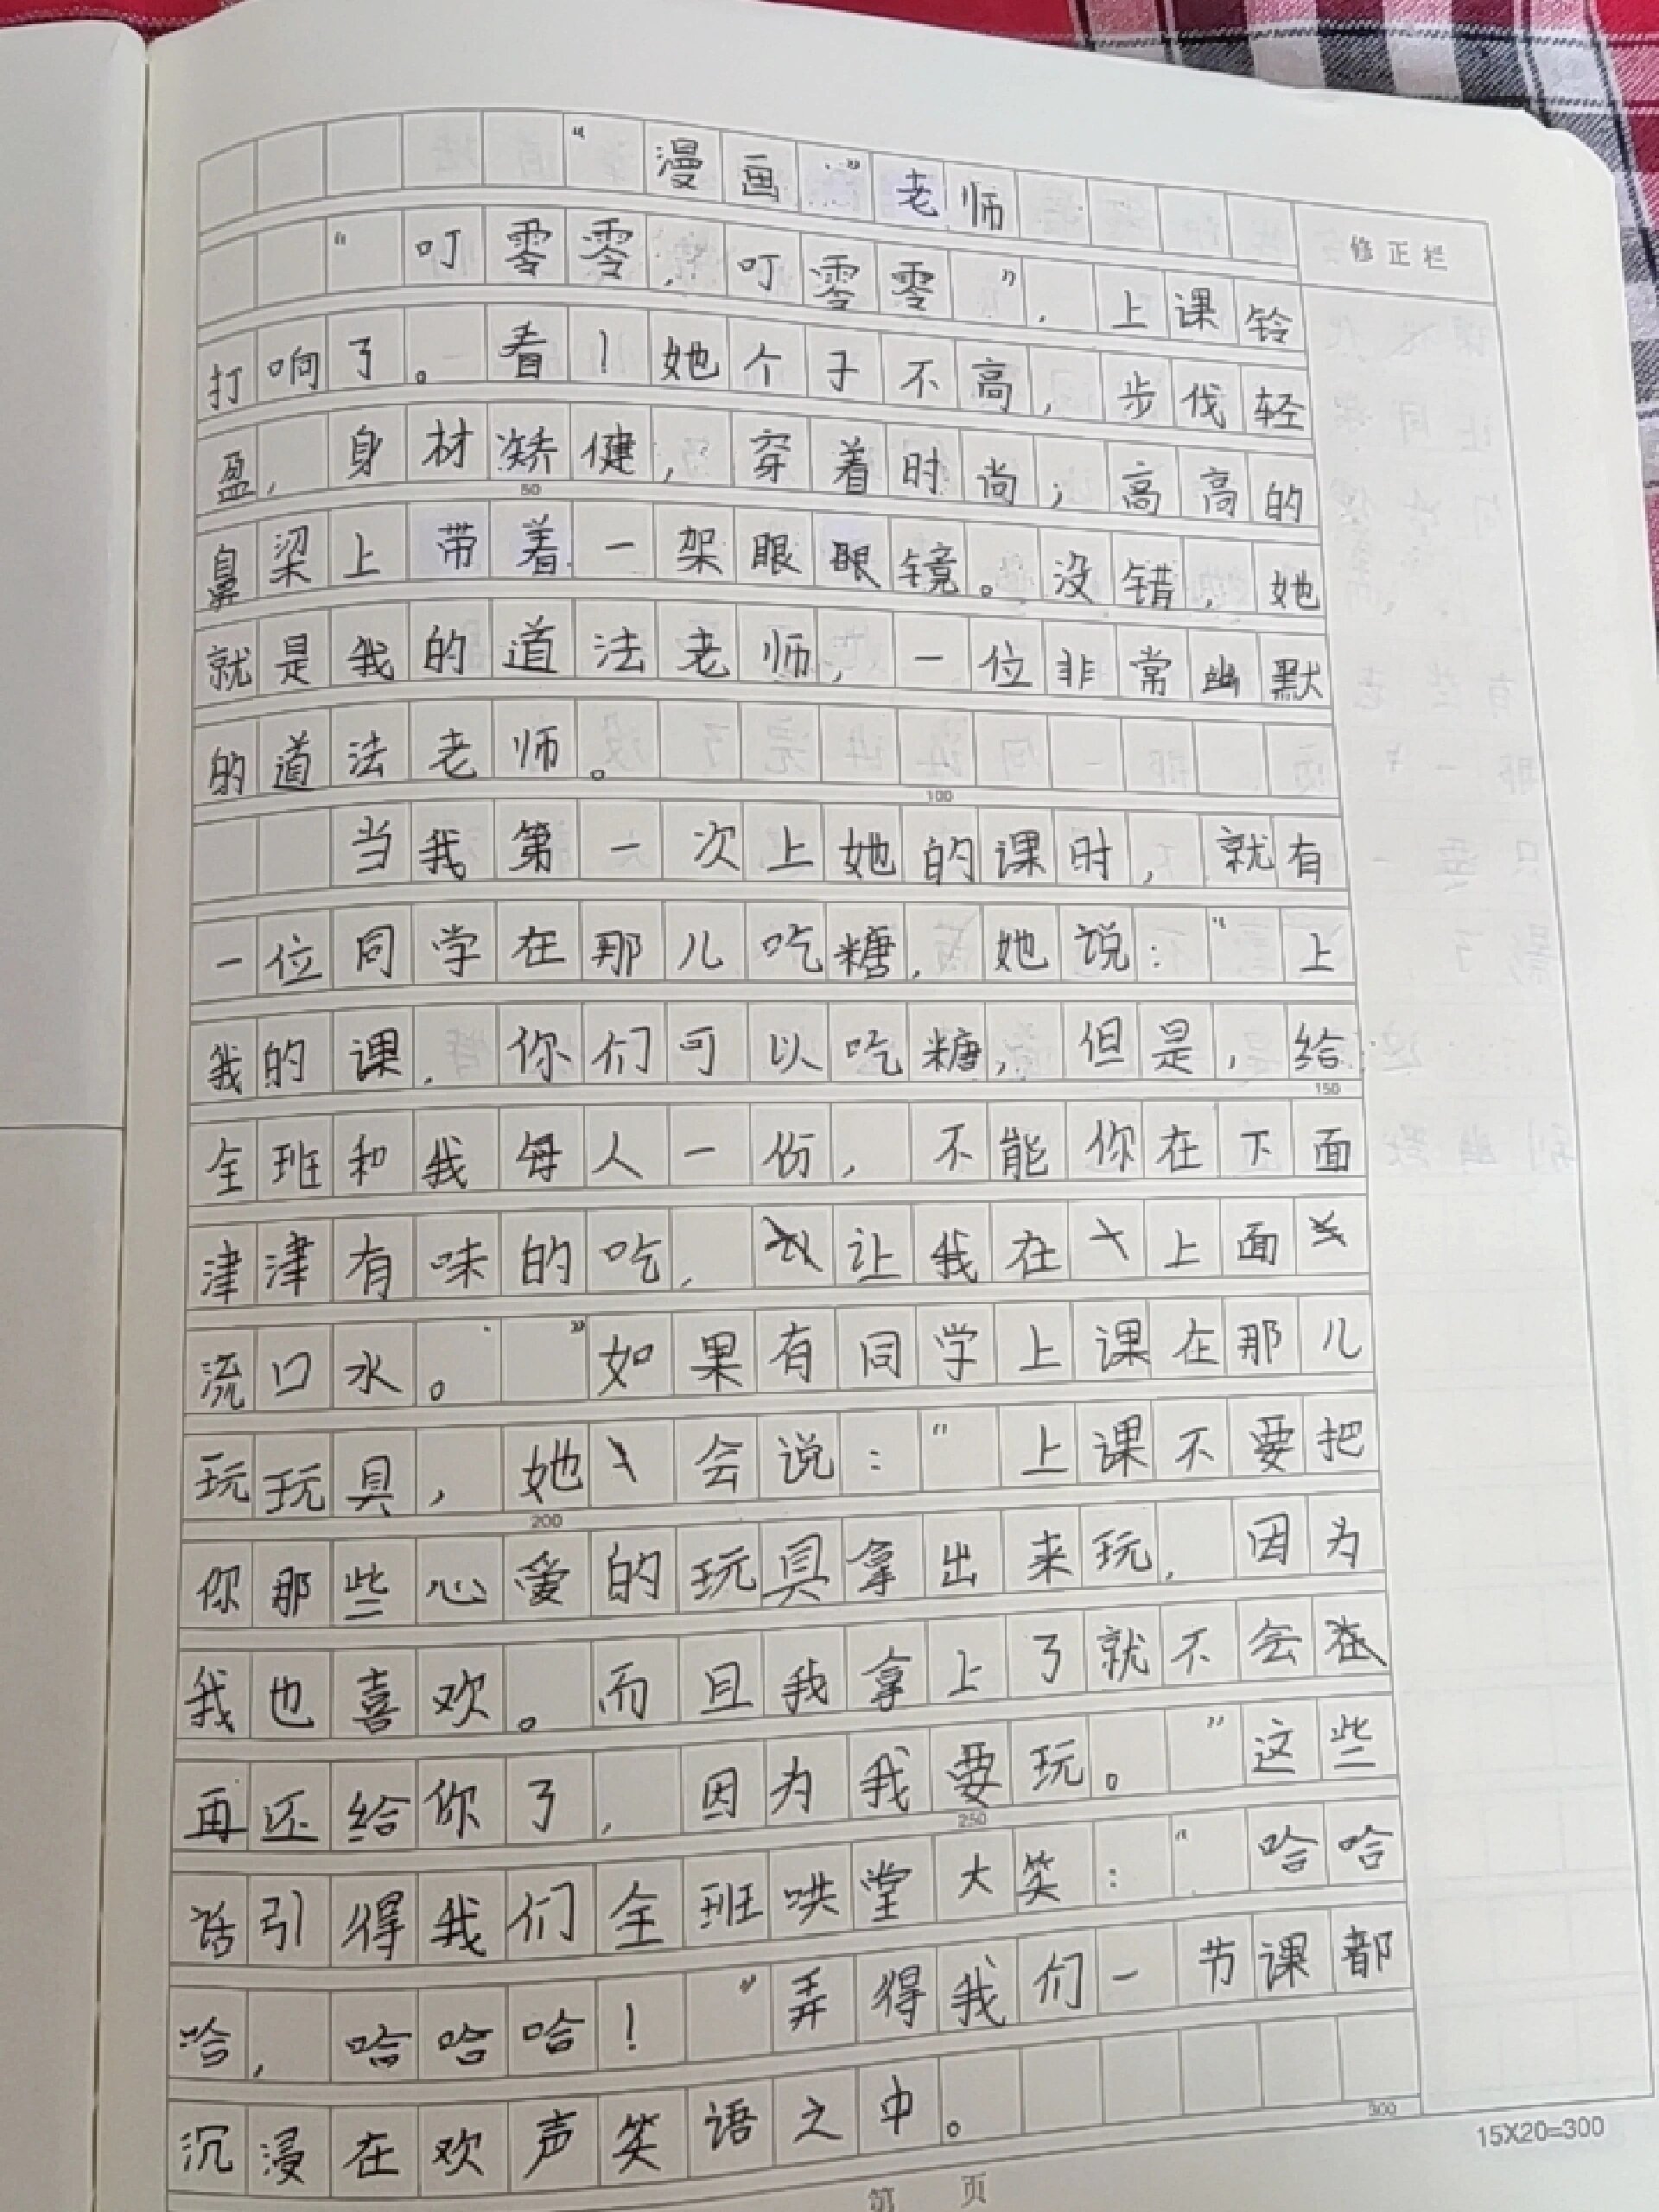 “漫画”老师
修正栏
“叮零零，叮零零”，上课铃
打响了。看！她个子不高，步伐轻
盈，身材矫健，穿着时尚；高高的
50
鼻梁上带着一架眼眼镜。没错，她
就是我的道法老师，一位非常幽默
的道法老师。
100
当我第一次上她的课时，就有
一位同学在那儿吃糖，她说：“上
我的课，你们可以吃糖，但是，给
150
全班和我每人一份，不能你在下面
津津有味的吃，让我在上面
流口水。”如果有同学上课在那儿
玩玩具，她会说：“上课不要把
200
你那些心爱的玩具拿出来玩，因为
我也喜欢。而且我拿上了就不会
再还给你了，因为我要玩。”这些
250
话引得我们全班哄堂大笑：“哈哈
哈，哈哈哈！”弄得我们一节课都
沉浸在欢声笑语之中。
300
15X20=300
第 页